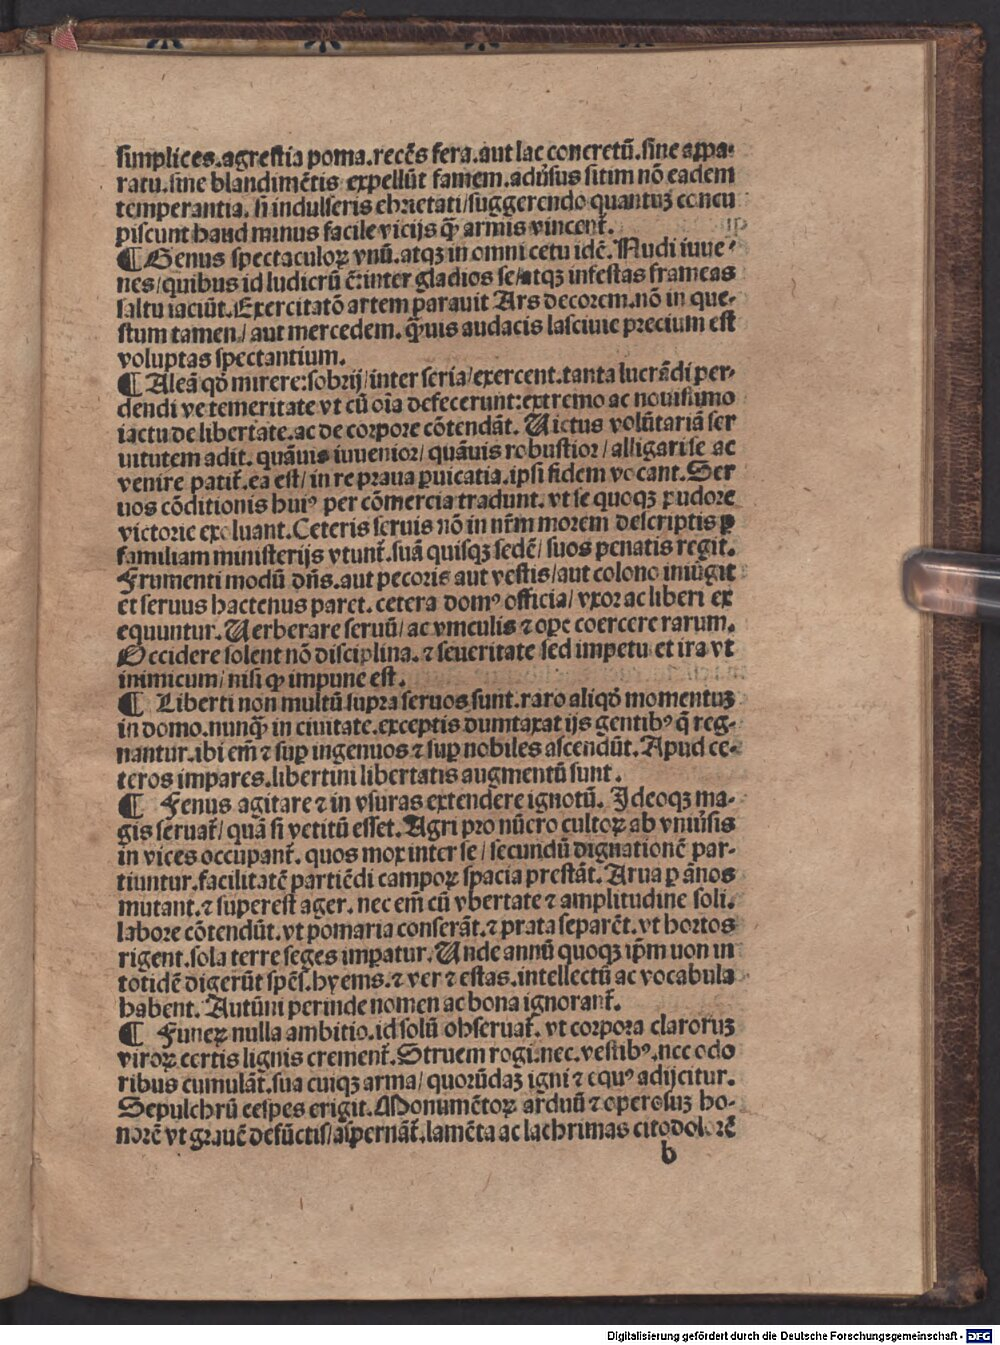 simplices.agrestia poma.recēs fera.aut lac concretū.sine appa⸗
ratu.sine blandimētis expellūt famem.aduſus sitim nō eadem
temperantia. si indulseris ebrietati/suggerendo quantuꝫ concu
piscunt haud minus facile vicijs qͣ armis vincent̄.
¶ Genus spectaculoꝝ vnū.atqꝫ in omni cetu idē. Nudi iuue⸗
nes/quibus id ludicrū ē:inter gladios se/atqꝫ infestas frameas
saltu iaciūt.Exercitatō artem parauit Ars decorem.nō in que⸗
stum tamen/ aut mercedem. qͣuis audacis lasciuie precium est
voluptas spectantium.
¶ Aleā qd̄ mirere:sobrij/inter seria/exercent.tanta lucrādi per⸗
dendi ve temeritate vt cū oīa defecerunt:extremo ac nouissimo
iactu de libertate.ac de corpore cōtendāt. Uictus volūtariā ser
uitutem adit. quāuis iuuenior/ quāuis robustior/ alligari se ac
venire patit̄.ea est/ in re praua puicatia.ipsi fidem vocant.Ser
uos cōditionis huiꝰ per cōmercia tradunt. vt se quoqꝫ pudore
victorie exoluant.Ceteris seruis nō in nr̄m morem descriptis ꝑ
familiam ministerijs vtunt̄.suā quisqꝫ sedē/ suos penatis regit.
Frumenti modū dn̄s.aut pecoris aut vestis/aut colono iniūgit
et seruus hactenus paret. cetera domꝰ officia/ vxor ac liberi ex
equuntur. Uerberare seruū/ ac vinculis ⁊ ope coercere rarum.
Occidere solent nō disciplina. ⁊ seueritate sed impetu et ira vt
inimicum/ nisi qͣ impune est.
¶ Liberti non multū supra seruos sunt.raro aliqd̄ momentuꝫ
in domo.nunqͣ in ciuitate.exceptis dumtaxat ijs gentibꝰ q̄ reg⸗
nantur.ibi em̄ ⁊ suꝑ ingenuos ⁊ suꝑ nobiles ascendūt. Apud ce⸗
teros impares.libertini libertatis augmentū sunt.
¶ Fenus agitare ⁊ in vsuras extendere ignotū. Ideoqꝫ ma⸗
gis seruat̄/ quā si vetitū esset. Agri pro nūero cultoꝝ ab vniūsis
in vices occupant̄. quos mox inter se/ secundū dignationē par⸗
tiuntur.facilitatē partiēdi campoꝝ spacia prestāt. Arua ꝑ ānos
mutant.⁊ superest ager. nec em̄ cū vbertate ⁊ amplitudine soli.
labore cōtendūt.vt pomaria conserāt.⁊ prata separēt.vt hortos
rigent.sola terre seges imꝑatur. Unde annū quoqꝫ ip̄m uon in
totidē digerūt spēs.hyems.⁊ ver ⁊ estas.intellectū ac vocabula
habent. Autūni perinde nomen ac bona ignorant̄.
¶ Funeꝝ nulla ambitio.id solū obseruat̄. vt corpora claroruꝫ
viroꝝ certis lignis crement̄.Struem rogi.nec.vestibꝰ.nec odo
ribus cumulāt̄.sua cuiqꝫ arma/ quorūdaꝫ igni ⁊ equꝰ adijcitur.
Sepulchrū cespes erigit.Monumētoꝝ arduū ⁊ operosuꝫ ho⸗
norē vt grauē defūctis/aspernāt̄.lamēta ac lachrimas cito dolorē
b
Digitalisierung gefördert durch die Deutsche Forschungsgemeinschaft - DFG